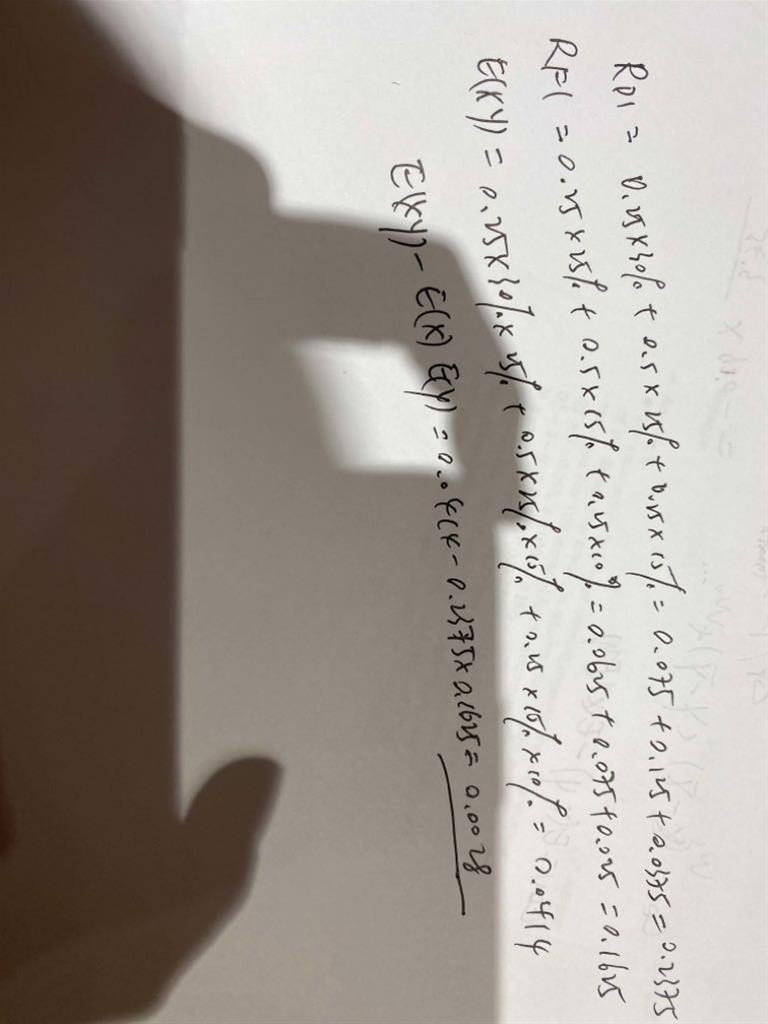 RD1 = 0.25×30% + 0.5×25% + 0.25×15% = 0.075 + 0.125 + 0.0375 = 0.2375
RF1 = 0.25×25% + 0.5×15% + 0.25×10% = 0.0625 + 0.075 + 0.025 = 0.1625
E(XY) = 0.25×30%×25% + 0.5×25%×15% + 0.25×15%×10% = 0.0414
E(XY) - E(X) E(Y) = 0.0414 - 0.2375×0.1625 = 0.0028